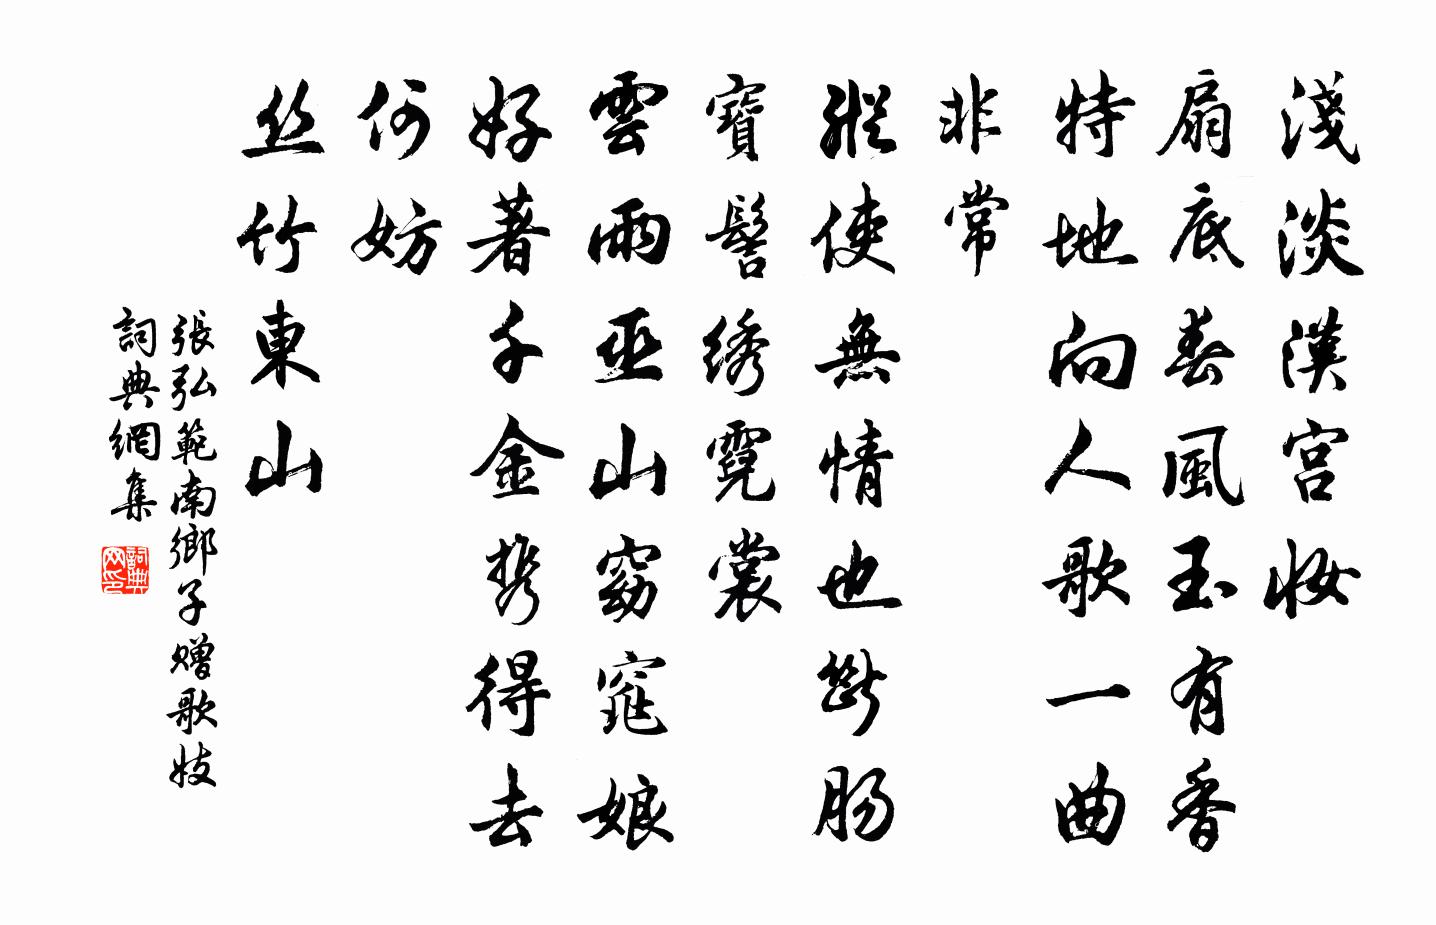 淺淡漢宮妝
扇底春風玉有香
特地向人歌一曲
非常
縱使無情也斷腸
寶髻綉霓裳
雲雨巫山窈窕娘
好著千金携得去
何妨
丝竹東山
張弘範南鄉子贈歌妓
詞典網集
詞典网印